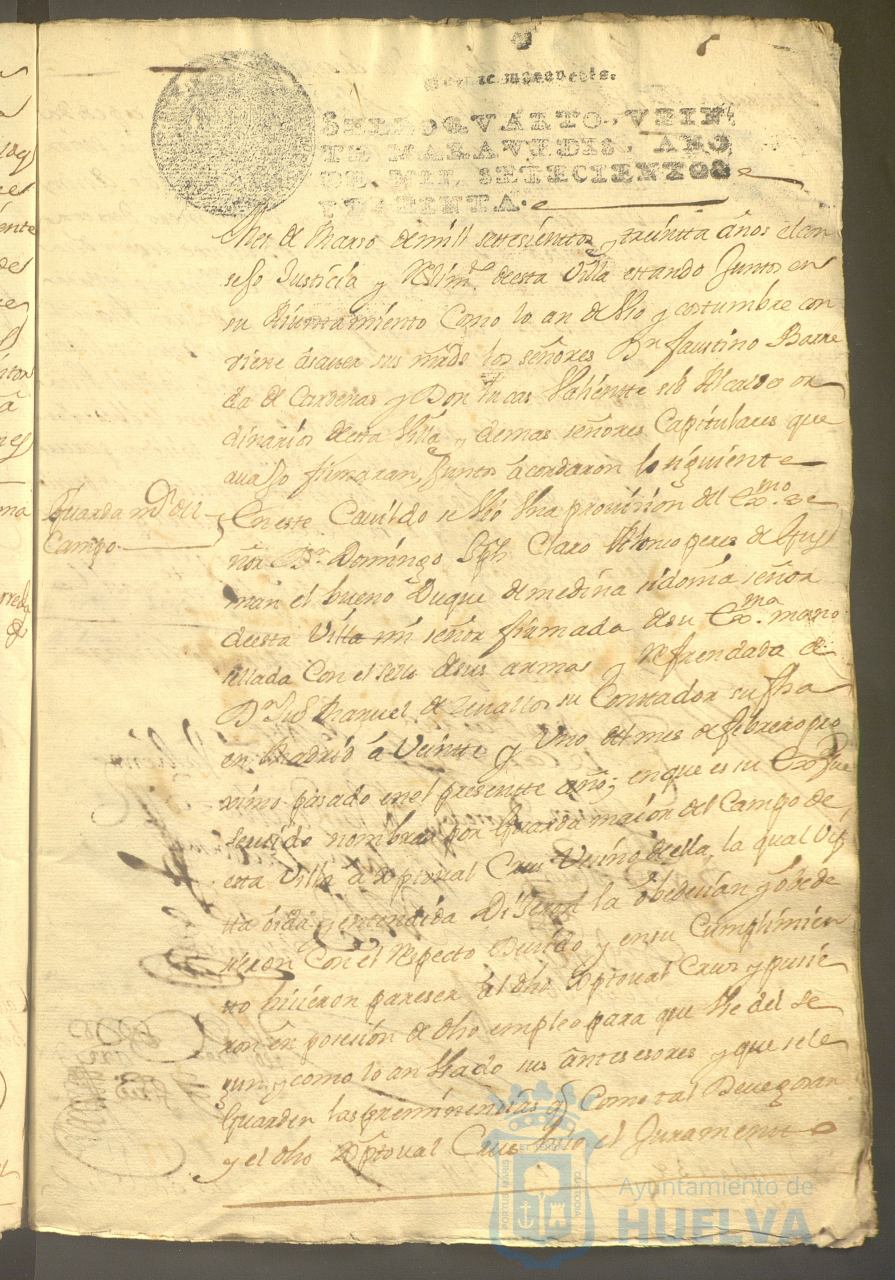 SELLO QVARTO, VEIN
TE MARAVEDIS, AÑO
DE MIL SETECIENTOS
TREINTA.
Mes de Marso de mill settesientos y treintta años el con
sejo Justicia y Rejim.to de esta Villa estando Juntos en
su Aiuntamiento Como lo an de Vso y costumbre con
viene a sauer sus mrds los señores Dn faustino Barre
da de Cardenas y Don Lucas Valientte Alcaldes or
dinarios de esta Villa y demas señores Capitulares que
avajo firmaran, Juntos acordaron lo siguiente
Guarda mor del
Campo
En este Cauildo se Vio Vna provision del Exmo. se
ñor Dn. Domingo Jph Claro Alonso peres de Gus
man el bueno Duque de medina sidonia señor
de esta Villa mi señor firmada de su Exma. mano
sellada Con el sello de sus armas y Refrendada de
Dn Manuel de su Conttador su fha
en Madrid a Veintte y Uno del mes de febrero pro
ximo pasado en el presentte año; en que es su Exa fue
seruido nombrar por Guarda maior del Campo de
esta Villa a Xptoual Crus Vesino de ella, la qual Vis
tta oida y entendida Dijeron la obedesian y obede
sieron Con el Respecto Devido y en su Cumplimien
tto hisieron pareser al dho Xptoual Crus y pusie
ron en posesion de dho empleo para que Vse del se
gun y como lo an Vsado sus antesesores y que se le
Guarden las preminensias q Como tal Deue gosar
y el dho Xptoual Crus hiso el Juramentto
Ayuntamiento de
HUELVA